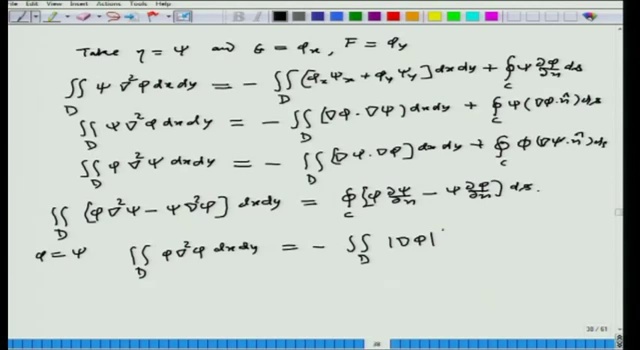 Take η = ψ and G = φₓ, F = φᵧ
∬_D ψ ∇²φ dxdy = - ∬_D [φₓψₓ + φᵧψᵧ] dxdy + ∮_C ψ ∂φ/∂n ds
∬_D ψ ∇²φ dxdy = - ∬_D (∇φ · ∇ψ) dxdy + ∮_C ψ (∇φ · n̂) ds
∬_D φ ∇²ψ dxdy = - ∬_D [∇ψ · ∇φ] dxdy + ∮_C φ (∇ψ · n̂) ds
∬_D [φ∇²ψ - ψ∇²φ] dxdy = ∮_C [φ ∂ψ/∂n - ψ ∂φ/∂n] ds.
φ = ψ ∬_D φ∇²φ dxdy = - ∬_D |∇φ|
38 / 61
38